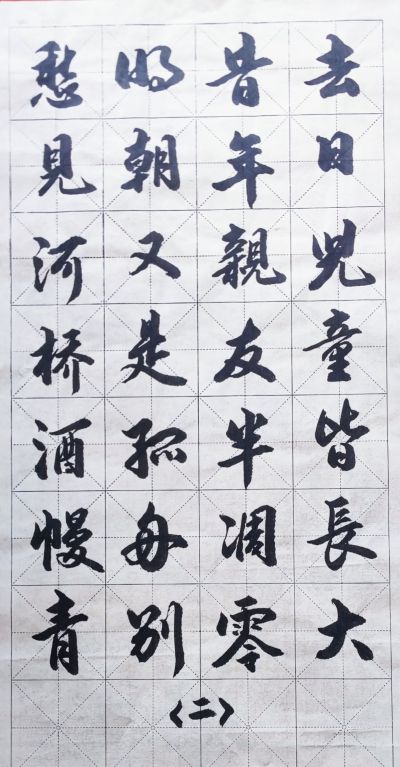 去日兒童皆長大
昔年親友半凋零
明朝又是孤舟別
愁見河橋酒幔青
〈二〉